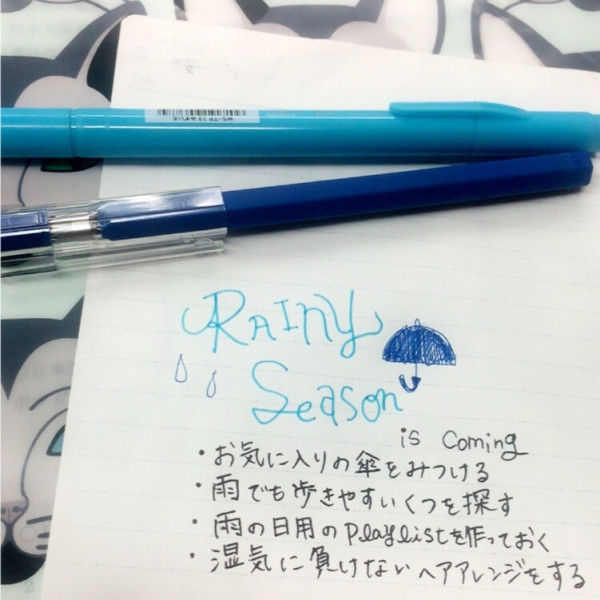 RAINY
Season
is Coming
・お気に入りの傘をみつける
・雨でも歩きやすいくつを探す
・雨の日用のPlaylistを作っておく
・湿気に負けないヘアアレンジをする